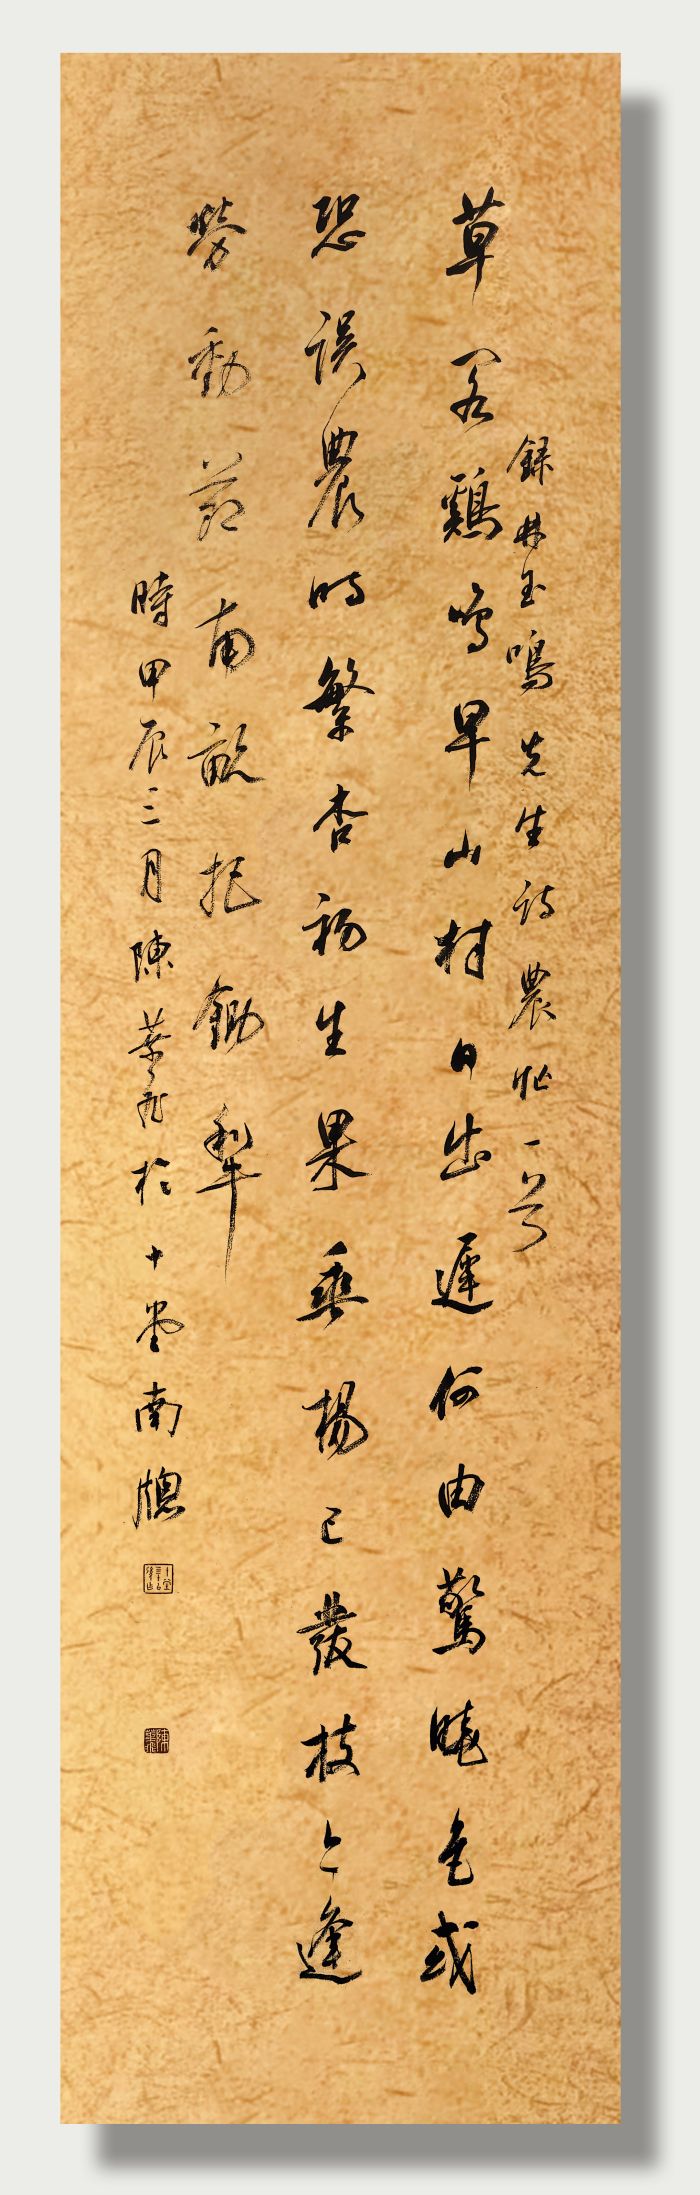 錄林玉鳴先生詩農忙一首
草名鷄鳴早山村日出遲何由驚曉色或
恐誤農時繁杏初生果垂楊已發枝今逢
勞動節南畝把鋤犂
時甲辰三月陳葉飛於十堂南牕